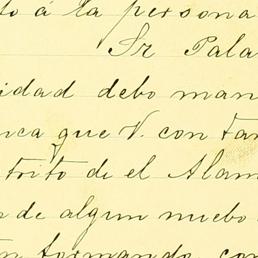 to á la persona
Sr Pala
idad debo man
nca que V. con tan
trito de el Alam
de algun nuebo
formando con